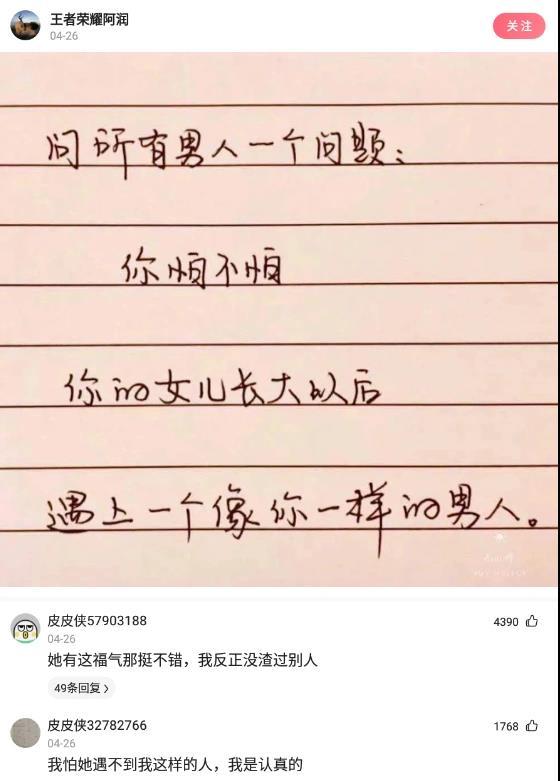 王者荣耀阿润
关注
04-26
问所有男人一个问题：
你怕不怕
你的女儿长大以后
遇上一个像你一样的男人。
皮皮侠57903188
4390
04-26
她有这福气那挺不错，我反正没渣过别人
49条回复 >
皮皮侠32782766
1768
04-26
我怕她遇不到我这样的人，我是认真的